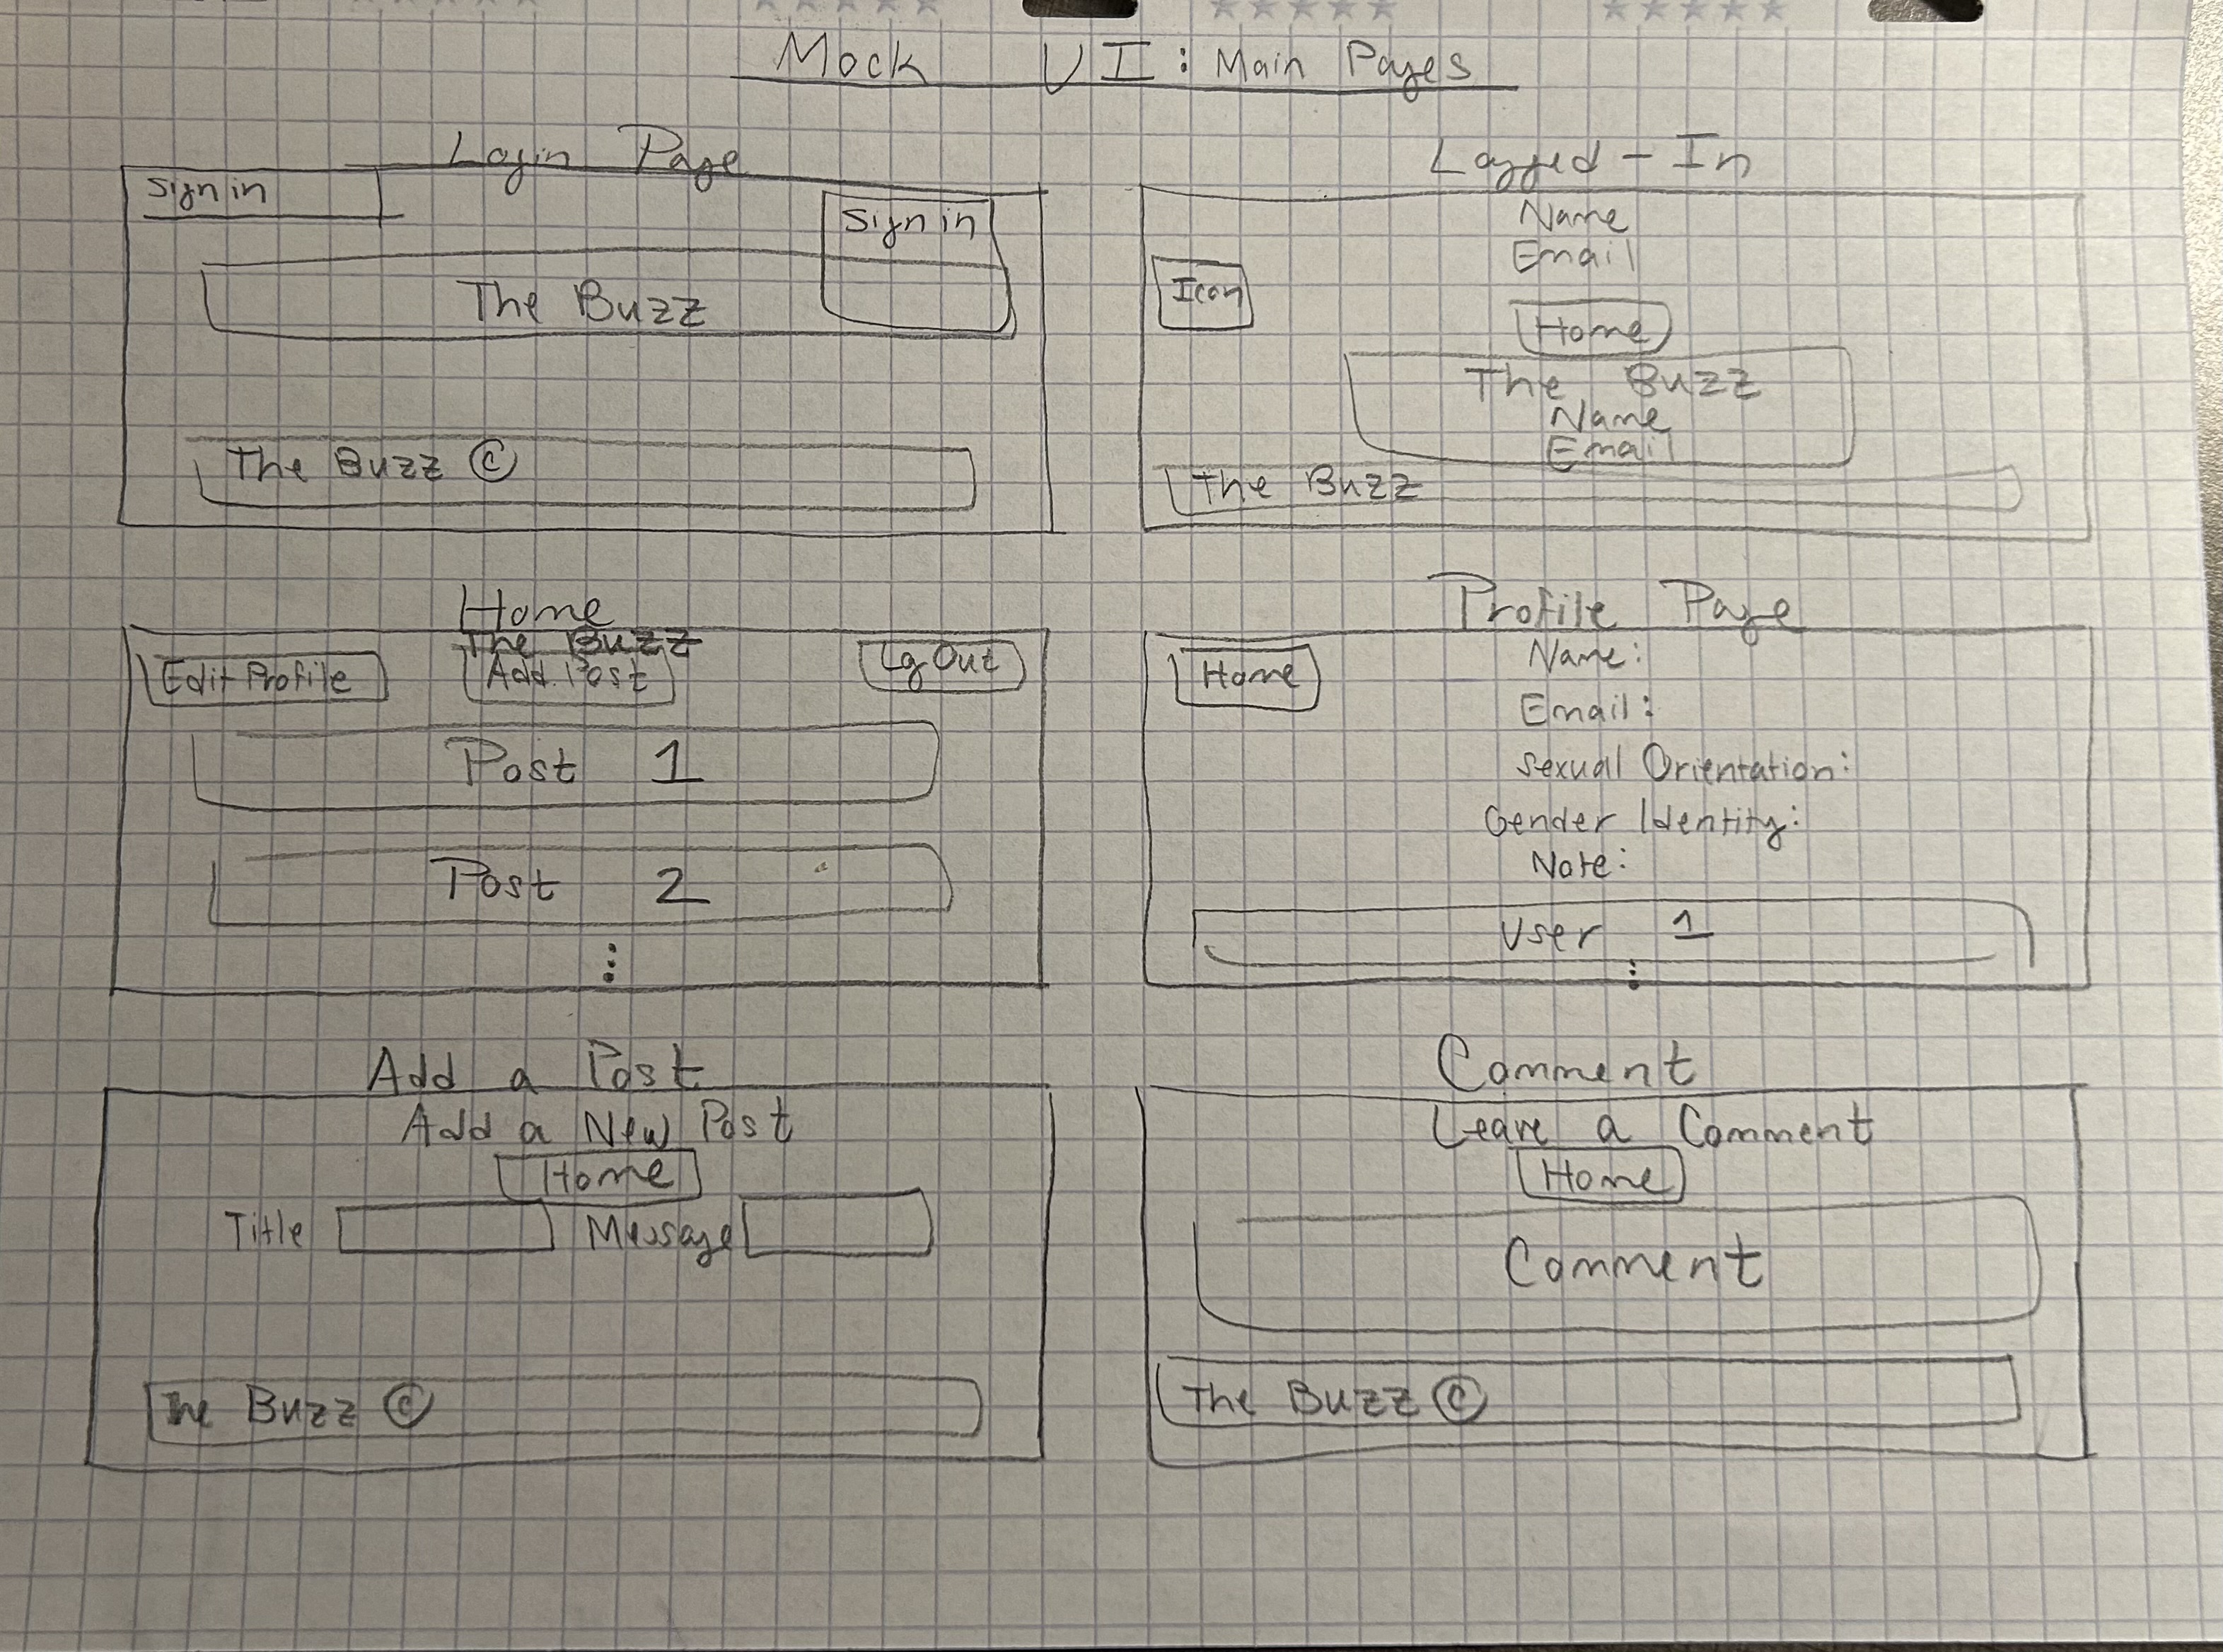 Mock UI: Main Pages
Login Page
Sign in
Sign in
The Buzz
The Buzz ©
Logged-In
Name
Email
Icon
Home
The Buzz
Name
Email
The Buzz
Home
The Buzz
Edit Profile
Add Post
Lg Out
Post 1
Post 2
⋮
Profile Page
Home
Name:
Email:
Sexual Orientation:
Gender Identity:
Note:
User 1
⋮
Add a Post
Add a New Post
Home
Title
Message
The Buzz ©
Comment
Leave a Comment
Home
Comment
The Buzz ©